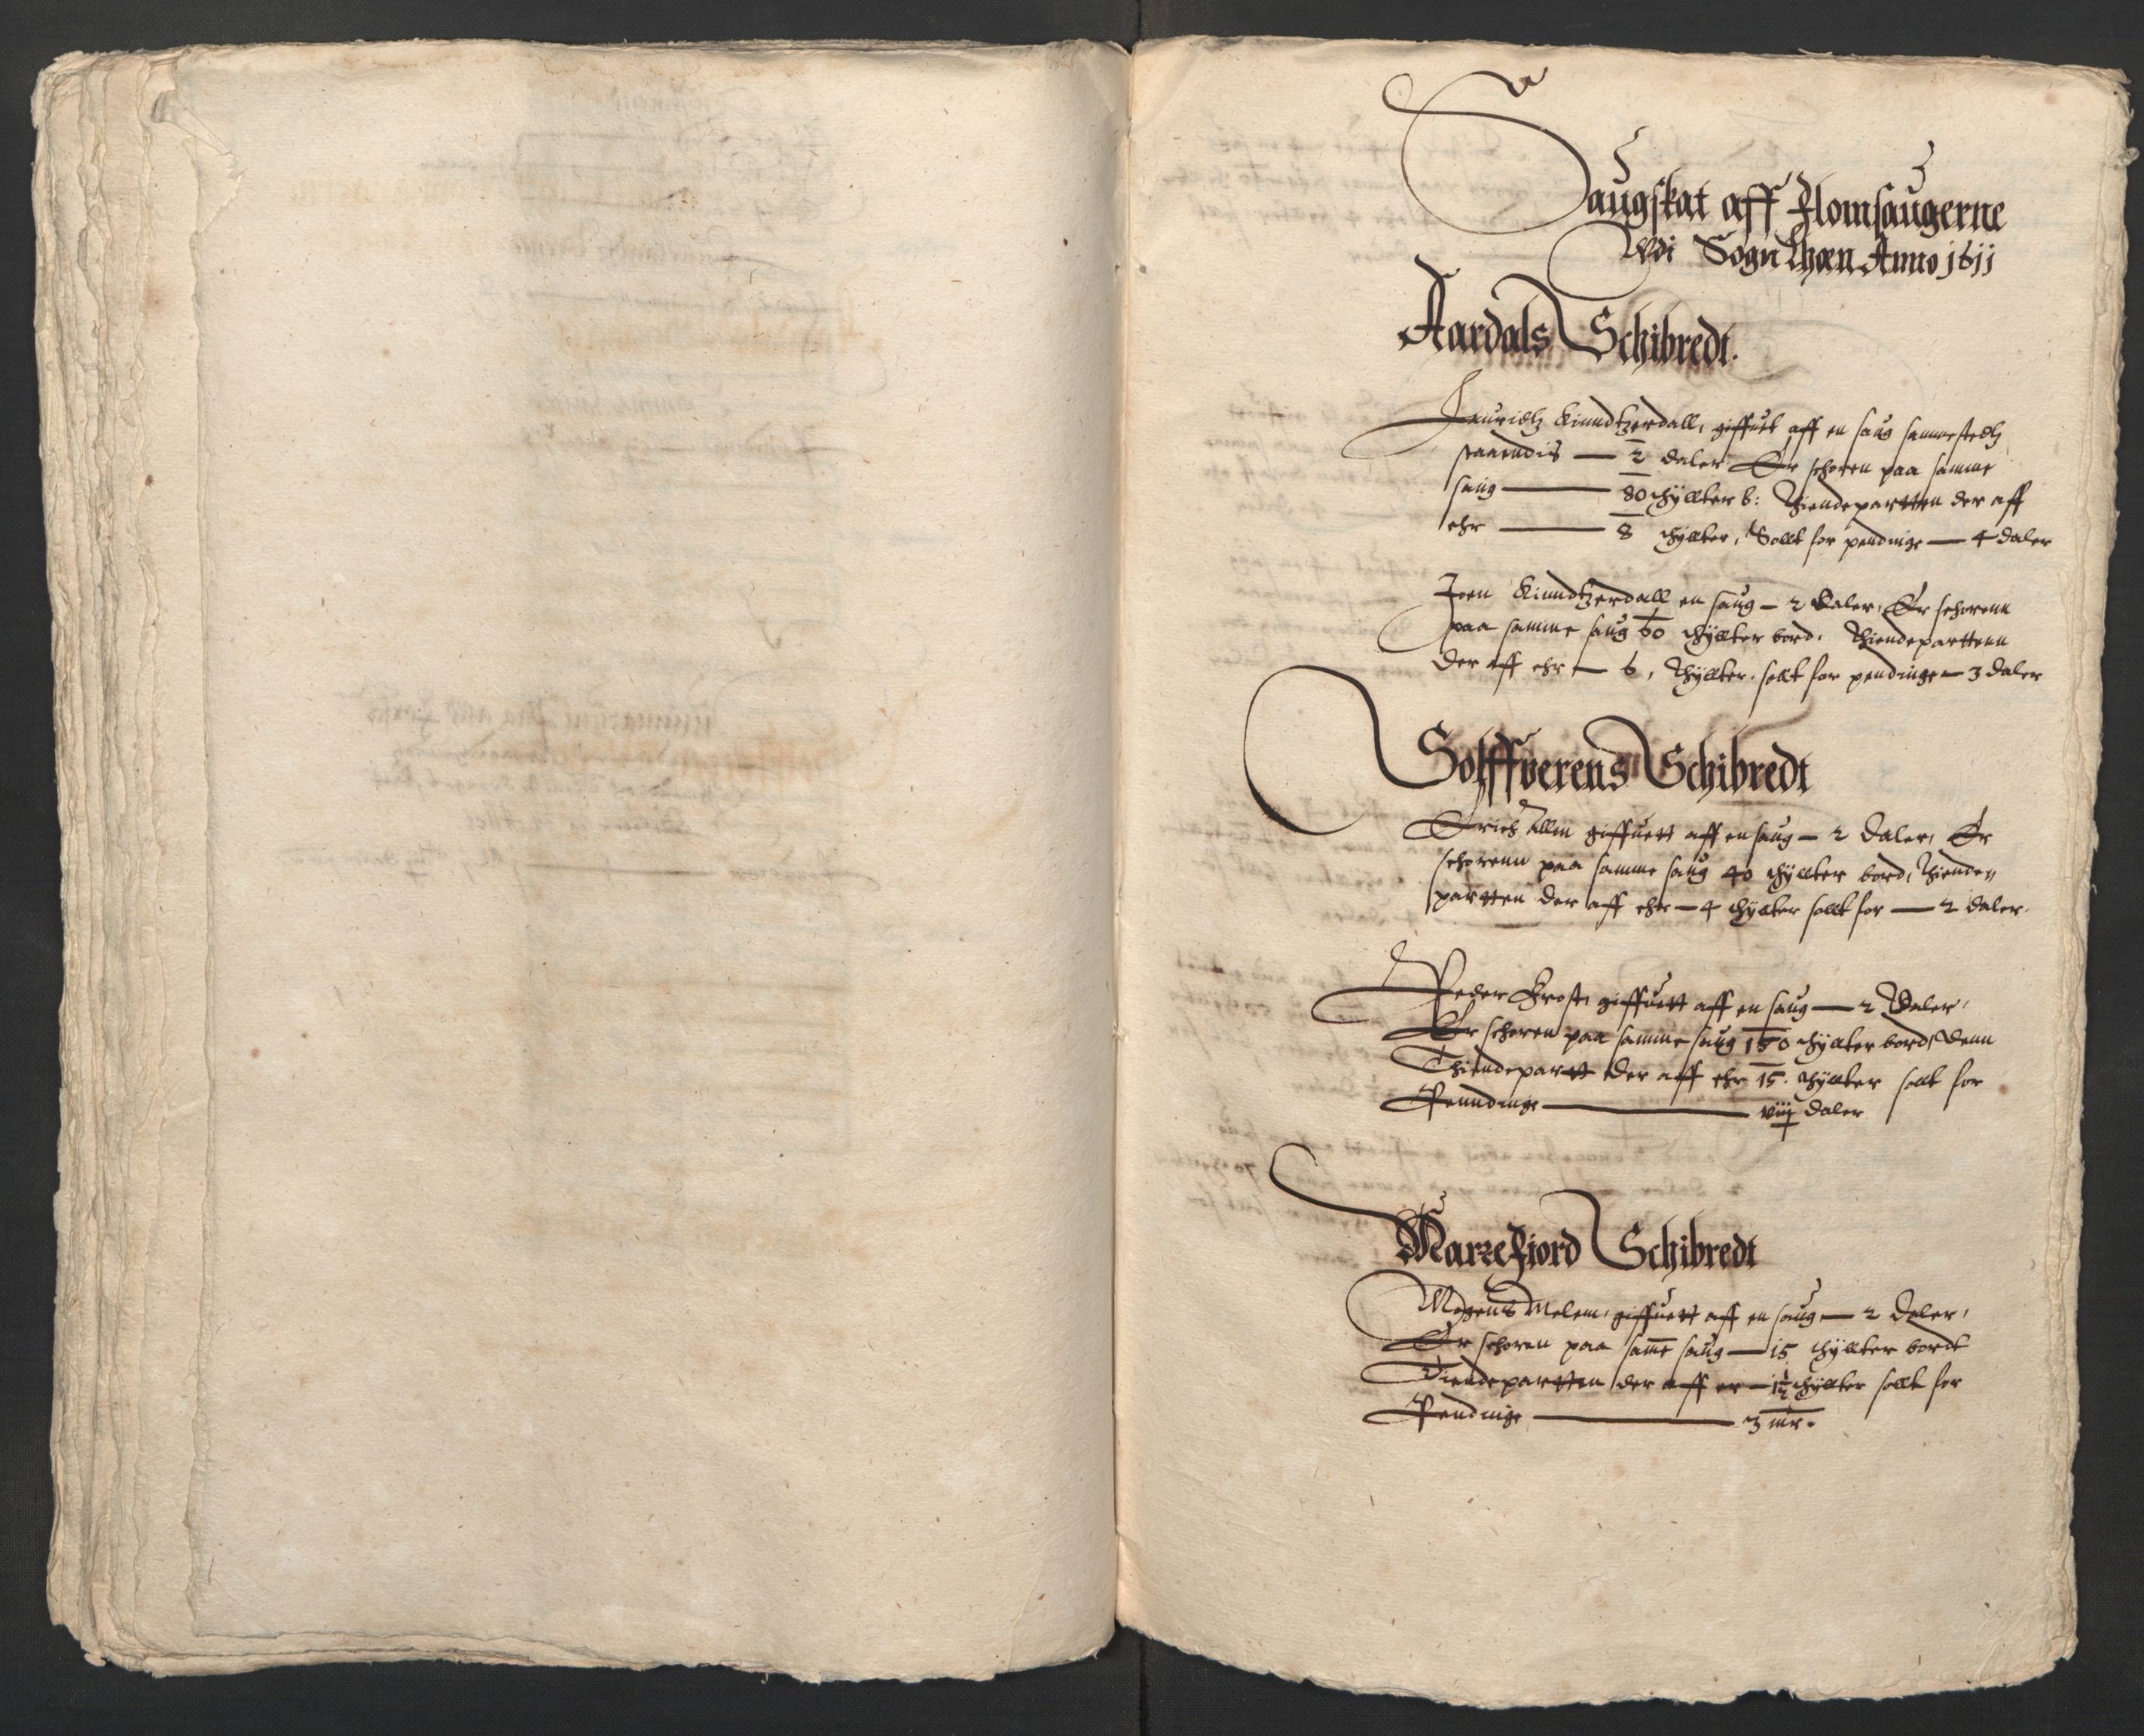 Saugskat aff Flomsaugerne
Udi Sogn Lhæn Anno 1611
Aardals Schibredt.
Lauridtz Kinndtzerdall, giffuet aff en saug sammestedtz
staaendis — 2 daler Er schoren paa samme
saug — 80 thÿllter b: Thiendepartten der aff
ehr — 8 thÿllter, Sollt for pendinge — 4 daler
Joen Kinndtzerdall en saug — 2 daler, Er schorenn
paa samme saug 60 thÿllter bord. Thiendeparttenn
der aff ehr — 6, Thÿllter. sollt for pendinge — 3 daler
Solffverens Schibredt
Erich giffuett aff en saug — 2 daler, Er
schorenn paa samme saug 40 thÿllter bord, Thiende//
partten der aff ehr — 4 thÿllter sollt for — 2 daler.
Peder Frost, giffuett aff en saug — 2 Daler,
Er schoren paa samme saug 150 thÿllter bord, Denn
Thiendepartt der aff ehr 15. thÿllter sollt for
Penndinge — viij daler
Marrefiord Schibredt
Mogens Melem, giffuett aff en saug — 2 Daler,
Er schoren paa samme saug — 15 thÿllter bordt
Tiendepartten der aff er — 1½ thÿllter sollt for
Pendinge — 3 mr.